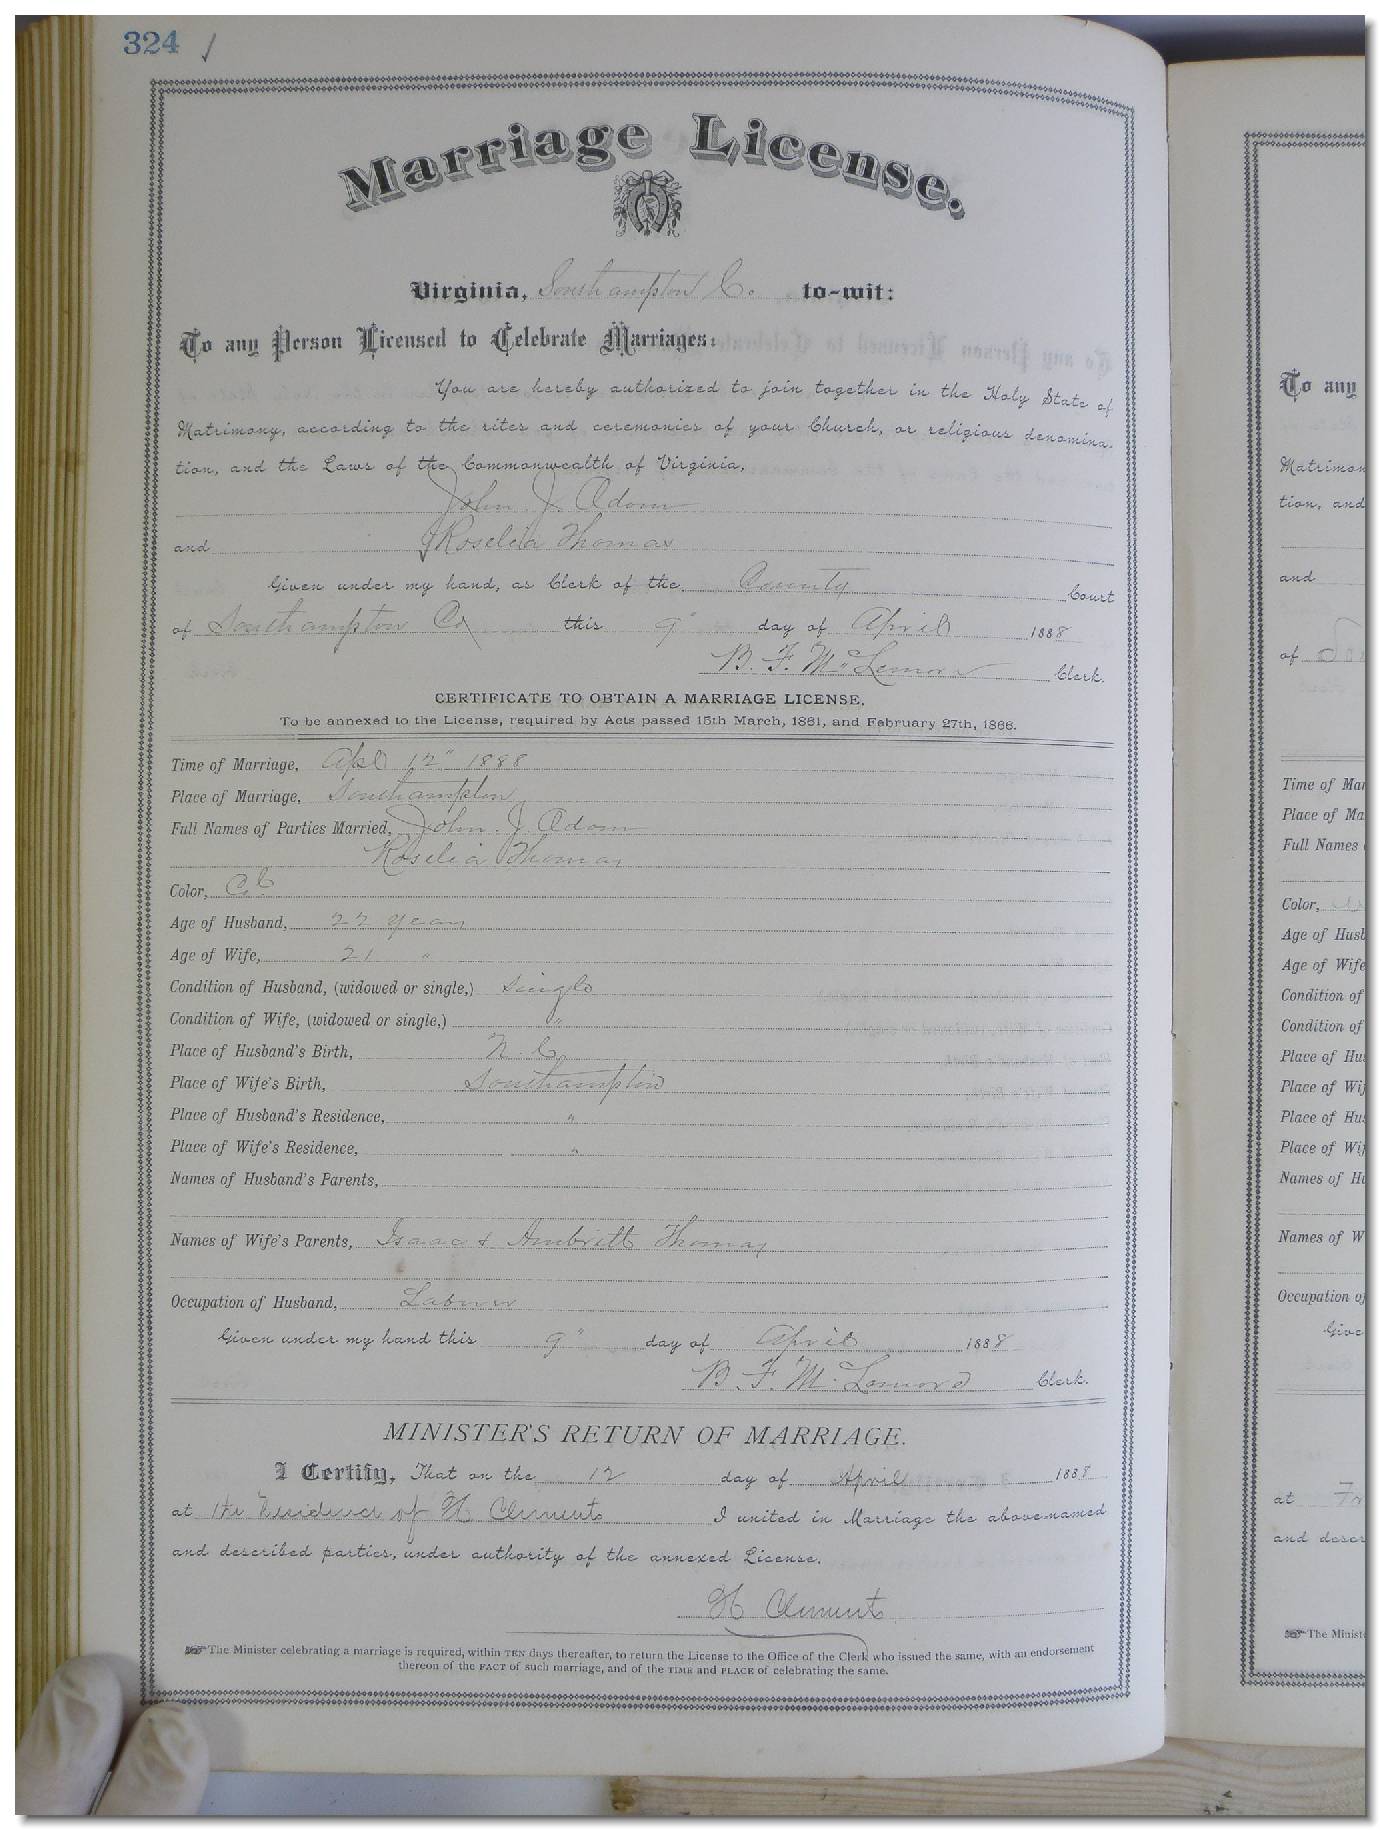 324 ✓
Marriage License.
Virginia, Southampton Co. to-wit:
To any Person Licensed to Celebrate Marriages:
You are hereby authorized to join together in the Holy State of
Matrimony, according to the rites and ceremonies of your Church, or religious denomina-
tion, and the Laws of the Commonwealth of Virginia,
John. J. Adom
and Roselia Thomas
Given under my hand, as Clerk of the County Court
of Southampton Co this 9" day of April 1888
B. F. McLemore Clerk.
CERTIFICATE TO OBTAIN A MARRIAGE LICENSE.
To be annexed to the License, required by Acts passed 15th March, 1861, and February 27th, 1866.
Time of Marriage, Apl 12" 1888
Place of Marriage, Southampton
Full Names of Parties Married, John. J Adom
Roselia Thomas
Color, Col
Age of Husband, 22 years
Age of Wife, 21 "
Condition of Husband, (widowed or single,) single
Condition of Wife, (widowed or single,) "
Place of Husband's Birth, N. C.
Place of Wife's Birth, Southampton
Place of Husband's Residence, "
Place of Wife's Residence, "
Names of Husband's Parents,
Names of Wife's Parents, Isaac & Thomas
Occupation of Husband, Laborer
Given under my hand this 9" day of April 1888
B. F. McLemore Clerk.
MINISTER'S RETURN OF MARRIAGE.
I Certify, That on the 12 day of April 1888
at the Residence of H Clements I united in Marriage the above-named
and described parties, under authority of the annexed License.
H Clements
The Minister celebrating a marriage is required, within TEN days thereafter, to return the License to the Office of the Clerk who issued the same, with an endorsement
thereon of the FACT of such marriage, and of the TIME and PLACE of celebrating the same.
To any
Matrimon
tion, and
and
of
Time of Mar
Place of Ma
Full Names
Color,
Age of Husb
Age of Wife
Condition of
Condition of
Place of Hu
Place of Wi
Place of Hu
Place of Wi
Names of H
Names of W
Occupation o
Give
at
and descr
The Minist